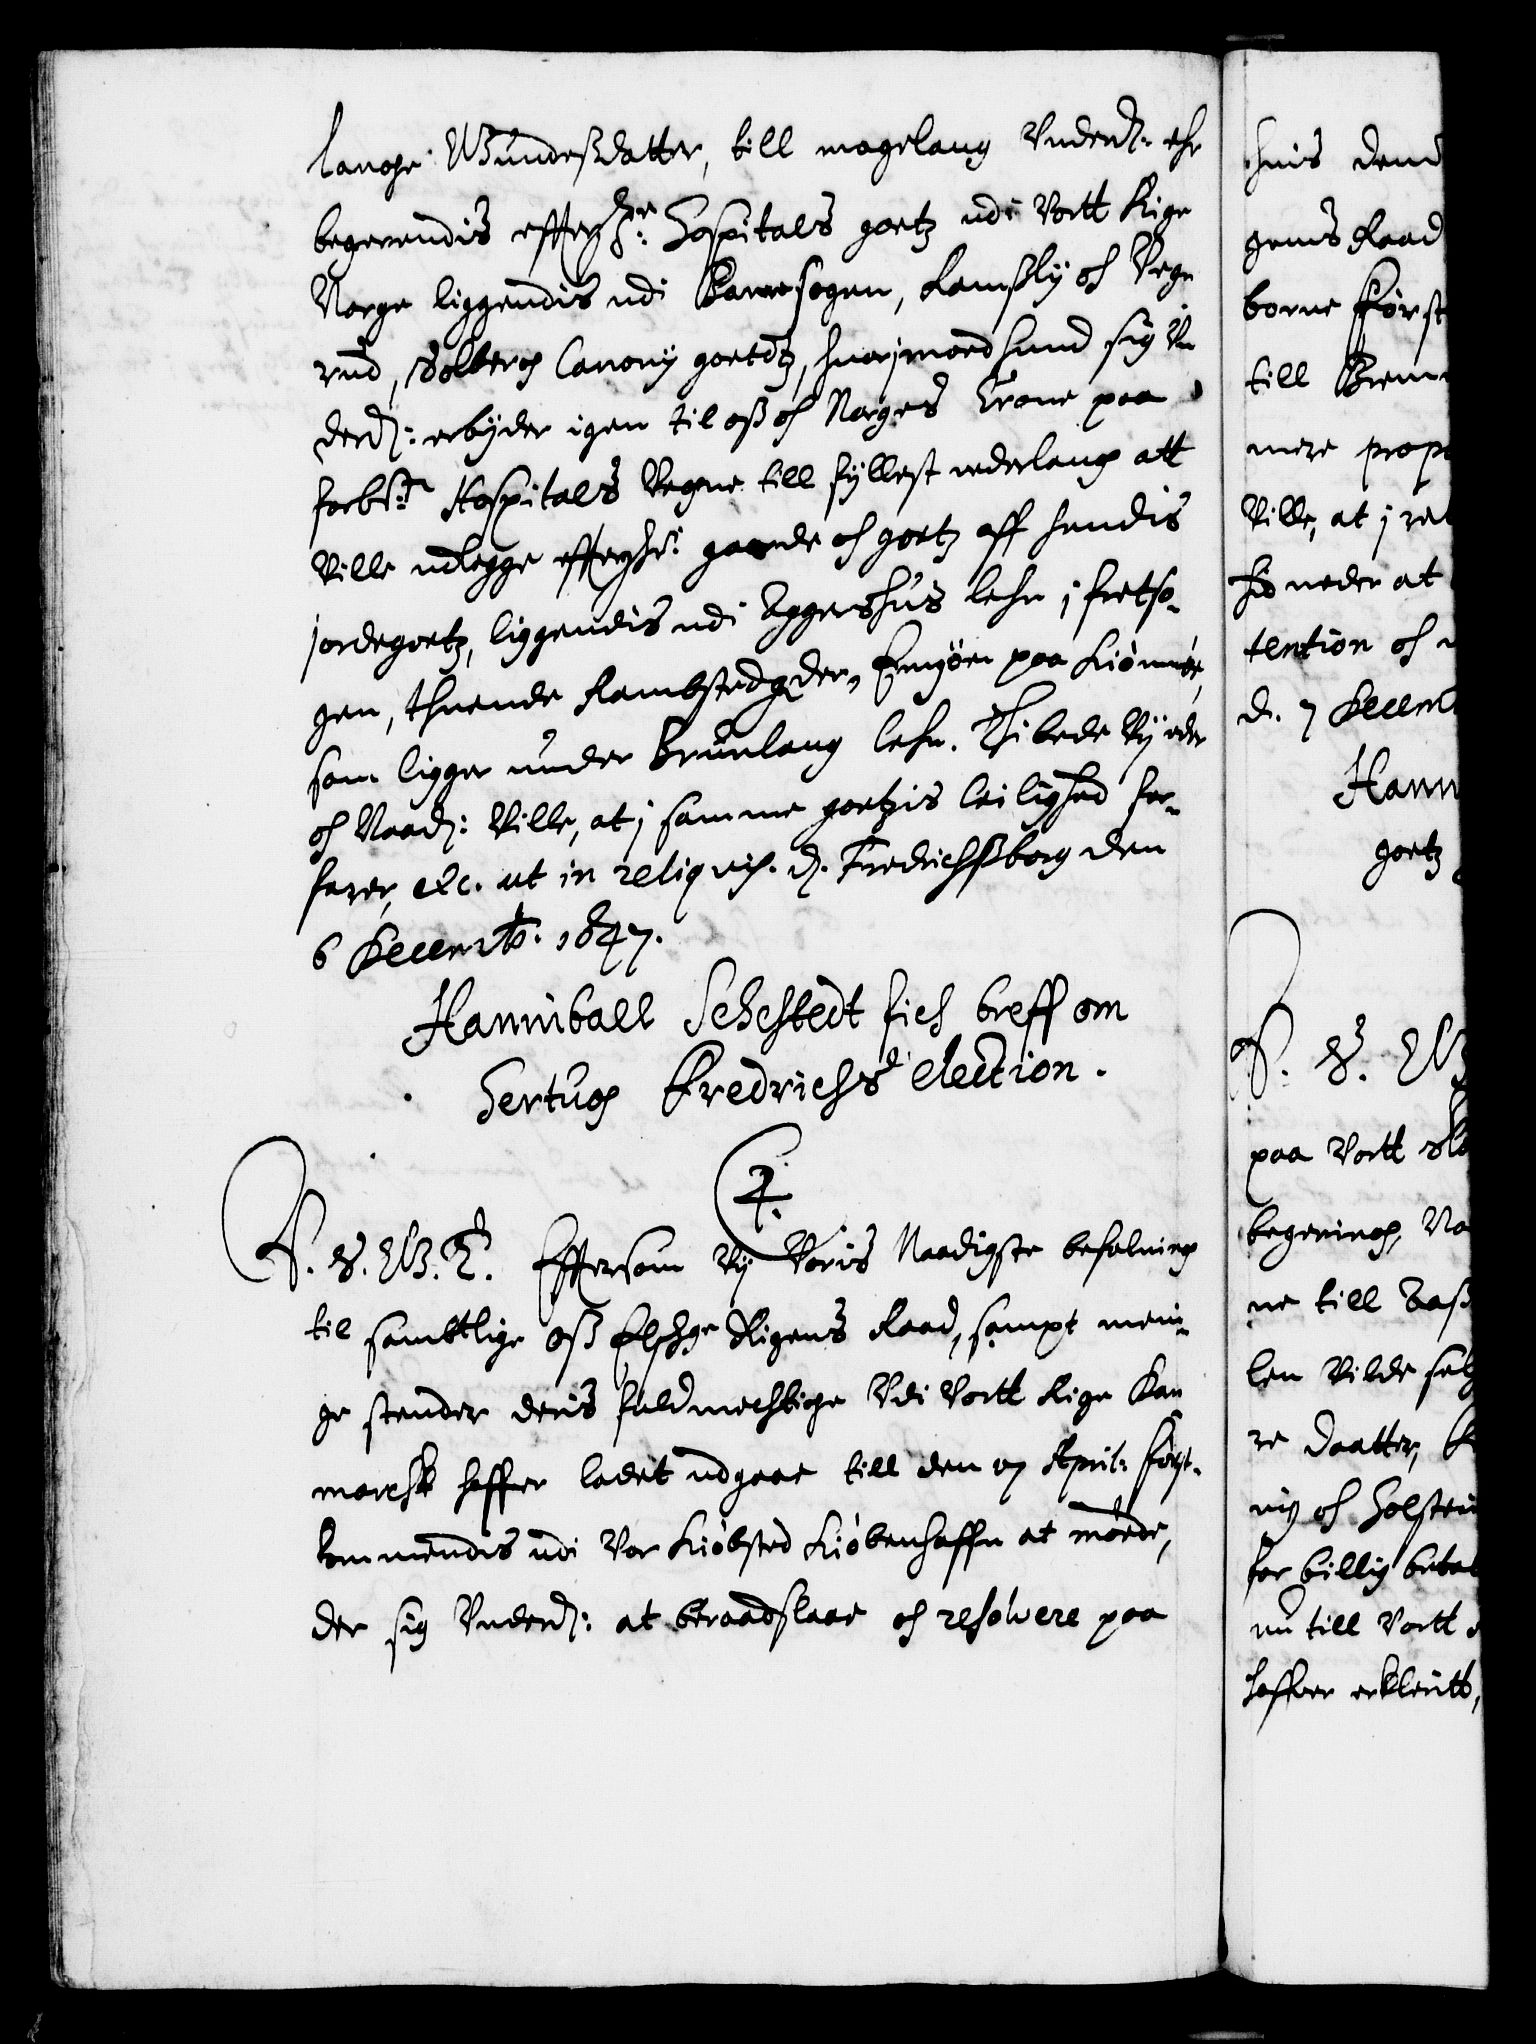 lange Mundeßdatter, till magelaug Underd: ehr
begerendis effterschr: Hospitals goetz udi Vortt Rige
Norge liggendis udi Borresogen, Ramßly och Vege
rud, Solberg Canonij goetdtz, huorimoed hund sig Un
derd: erbyder igen til oß och Norges Crone paa
forbte: Hospitals Vegne till fyllest vederlaug att
Ville udlegge effterschr: gaarde och goetz aff hendis
jordegoetz, liggendis udi Aggershus lehn i
gen, thuende Rambstedgder, paa
som ligger under Brunlaug lehn. Thi bede Vij eder
och Naad: Ville, at j samme goetzis leilighed for-
farer, etc. ut in reliquis. d. Fredrichßborg den
6 Decemb: 1647.
Hanniball Sehestedt fich breff om
Hertug Fredrichs election.
C. 4.
W. G. T. Effersom Vij Voris Naadigste befalning
til samtlige oß Elschge Rigens Raad, sampt mein-
ge stender deris fuldmechtige Udi Vortt Rige Dan
march haffver ladet udgaae till den 17 April: først-
kommendis udi Vor Kiøbsted Kiøbenhaffn at møede,
der sig Underd: at beraadslaae och resolvere paa
huis dend
gens Raad
borne Først
till Brem
mere prop
Ville, at j
hid neder at
tention och
d. 7 Decemb
Hann
goetz
paa Vortt
begering, Na
ne till
len Vilde
re daatter,
och Holstein
for billig betal
nu till Vortt
haffver erklertt,